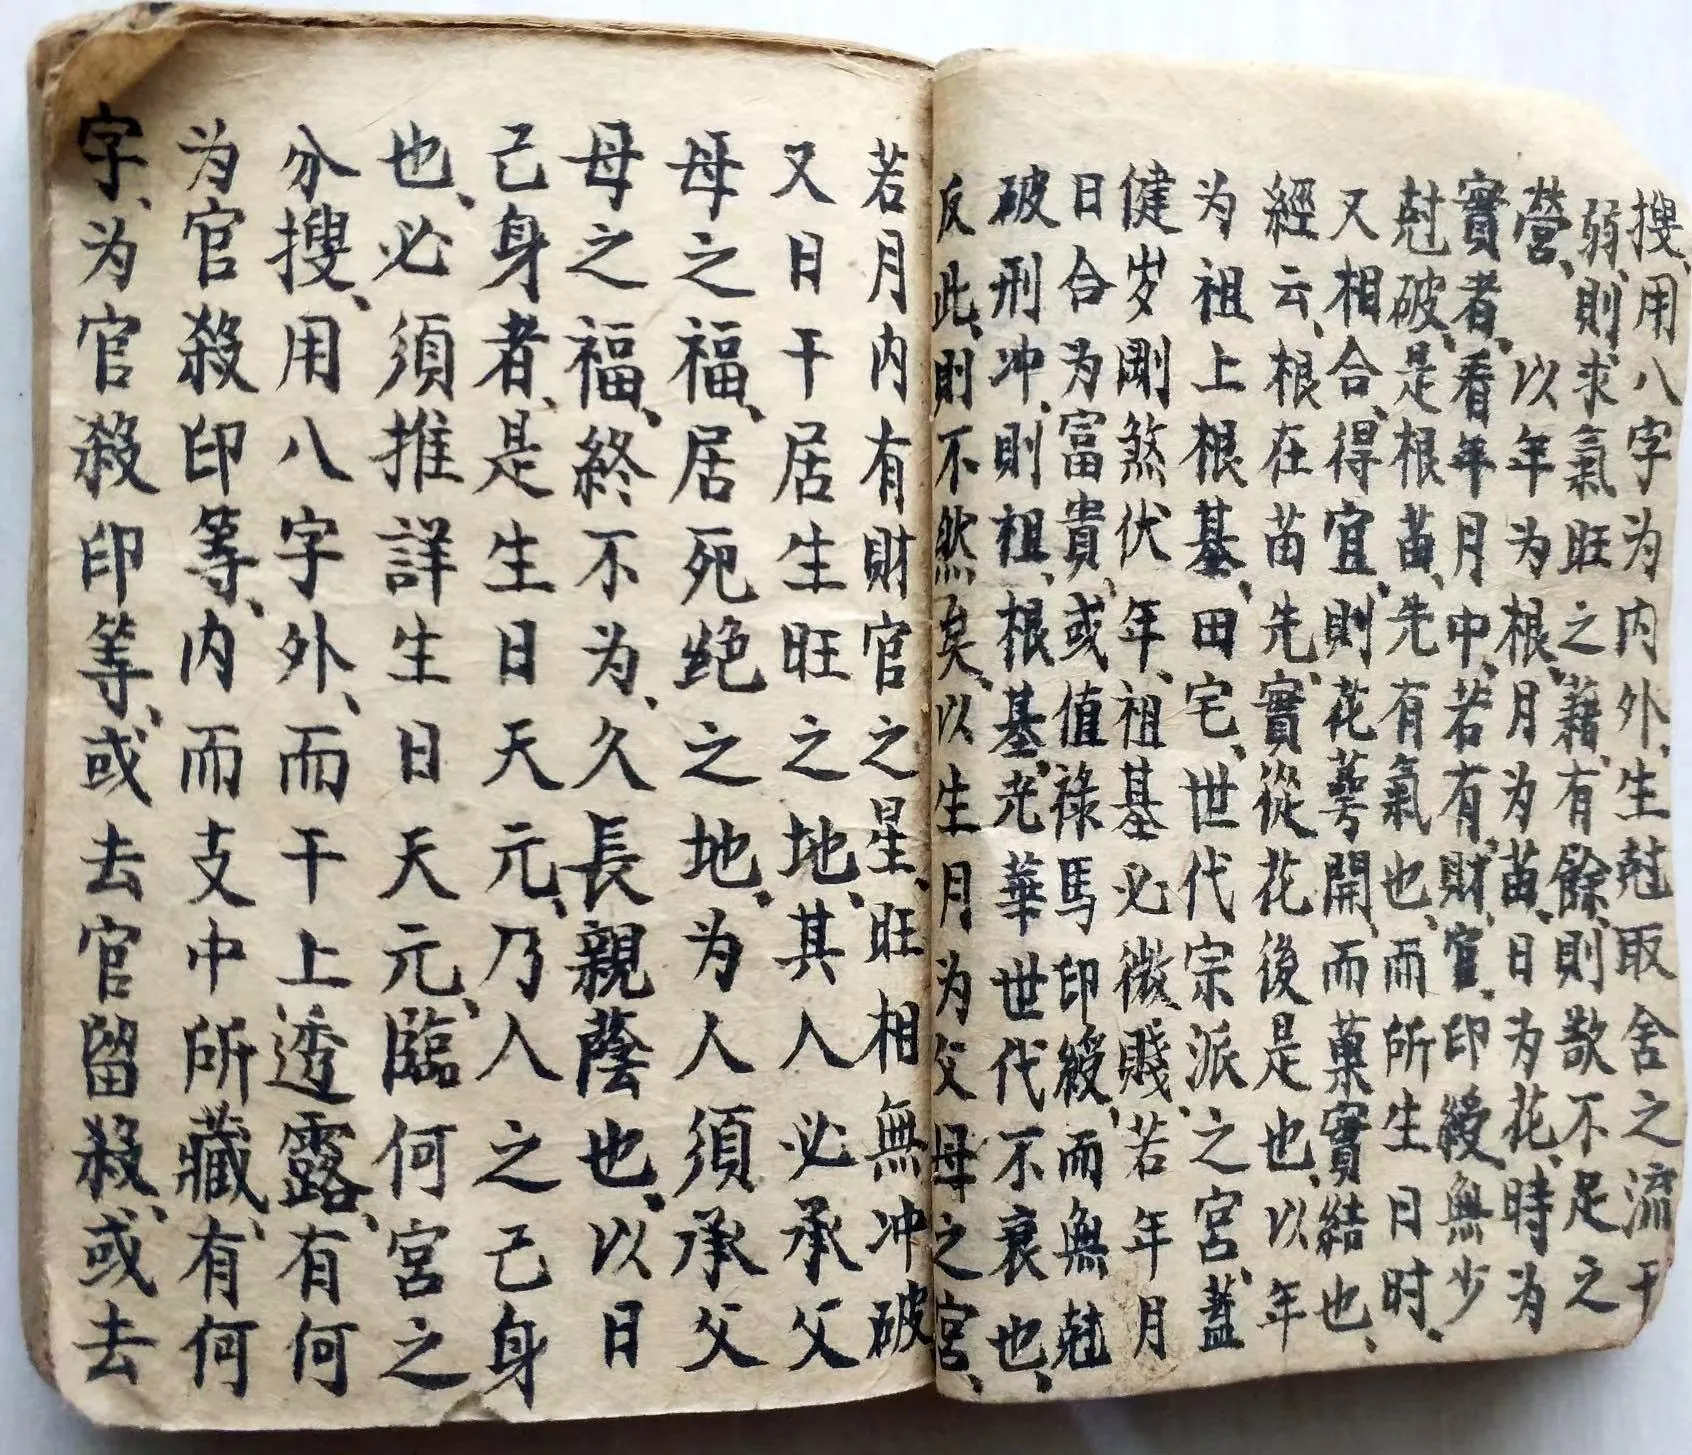 搜、用八字为内外、生尅取舍之流干
弱、則求氣旺之藉、有餘、則欲不足之
營、以年为根、月为苗、日为花、時为
實者、看年月中、若有財、官、印綬、無少
尅破、是根苗、先有氣也、而所生日时、
又相合、得宜、則花萼開、而菓實結也、
經云、根在苗先、實從花後是也、以年
为祖上根基、田宅、世代宗派之宮、蓋
健岁剛煞伏年、祖基必微賤、若年月
日合为富貴、或值祿馬印綬、而無尅
破刑冲、則祖、根基、光華世代不衰也、
反此、則不然矣、以生月为父母之宮、
若月内有財官之星、旺相無冲破
又日干居生旺之地、其人必承父
母之福、居死絶之地、为人須承父
母之福、終不为、久長親蔭也、以日
己身者、是生日天元、乃人之己身
也、必須推詳生日天元、臨何宮之
分搜、用八字外、而干上透露、有何
为官殺印等、内而支中所藏、有何
字、为官殺印等、或去官留殺、或去